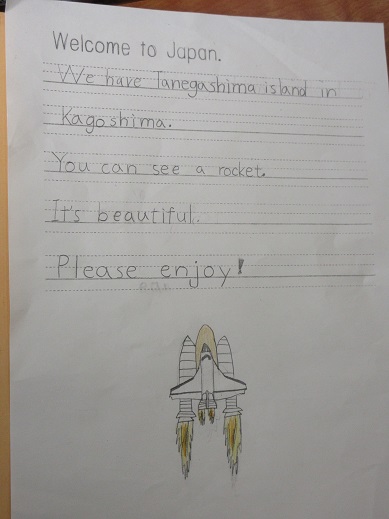 Welcome to Japan.
We have Tanegashima island in
Kagoshima.
You can see a rocket.
It's beautiful.
Please enjoy!